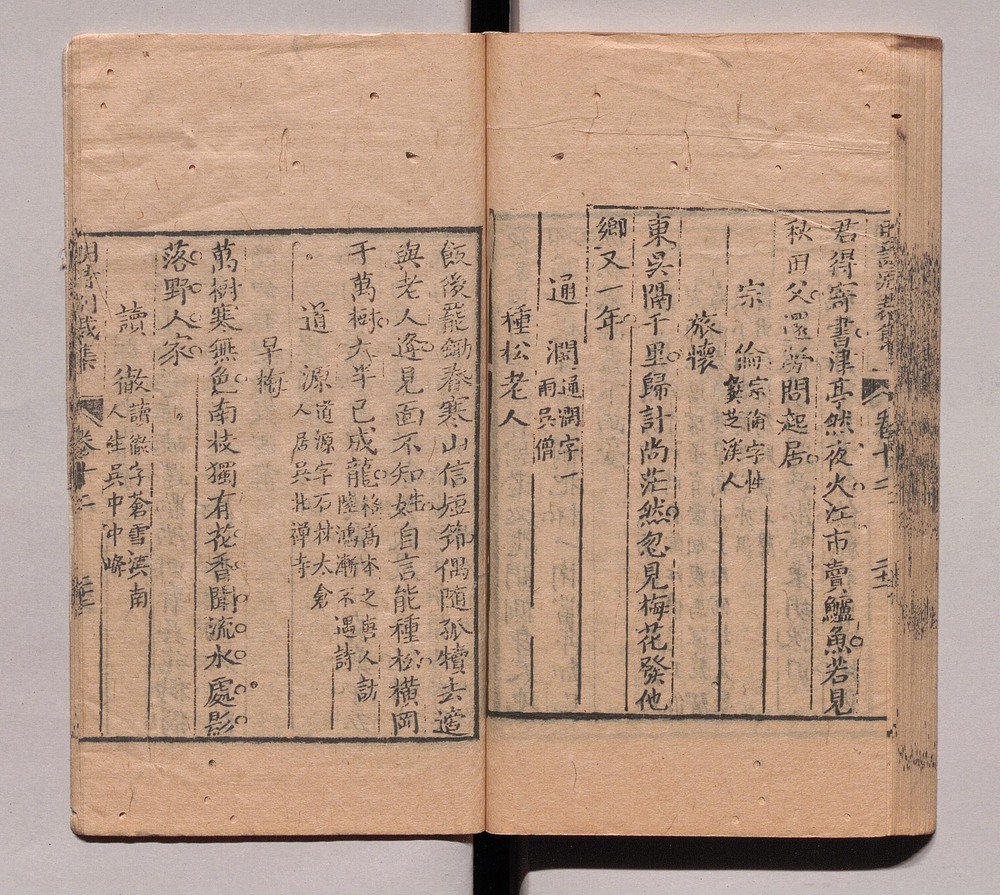 君得寄書津亭然夜火江市賣鱸魚若見
秋田父還勞問起居
宗倫宗倫字性
彝芝溪人
旅懷
東吳隔千里歸計尚茫然忽見梅花發他
鄉又一年
通潤通潤字一
雨吳僧
種松老人
飯後罷鋤春寒山信短筇偶隨孤犢去適
與老人逢見面不知姓自言能種松橫岡
千萬樹大半已成龍格高本之唐人訪
陸鴻漸不遇詩
道源道源字石林太倉
人居吳北禪寺
早梅
萬樹寒無色南枝獨有花香聞流水處影
落野人家
讀徹讀徹字蒼雪滇南
人住吳中中峰
明詩別裁集 卷十二